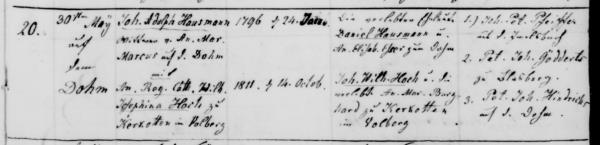 20.
30ten May
auf
dem
Dohm
Joh. Adolph Hausmann
Wittwer v. An. Mar.
Marcus auf d. Dohm
mit
An. Reg. Cath. Wilh.
Josephina Hoch zu
Kerkotten in Volberg
1796 d 24. Janu.
1811. d 14. Octob.
Die verlebten Eheleute
Daniel Hausmann u.
An. Elisab. zum Dohm
Joh. Wilh. Hoch u. die
verlebte An. Mar. Burg
hard zu Kerkotten
in Volberg
1.) Joh. Pet.
auf d.
2. Pet. Joh. Gödderts
zu Blasberg.
3. Pet. Joh. Hindrichs
auf d. Dohm.